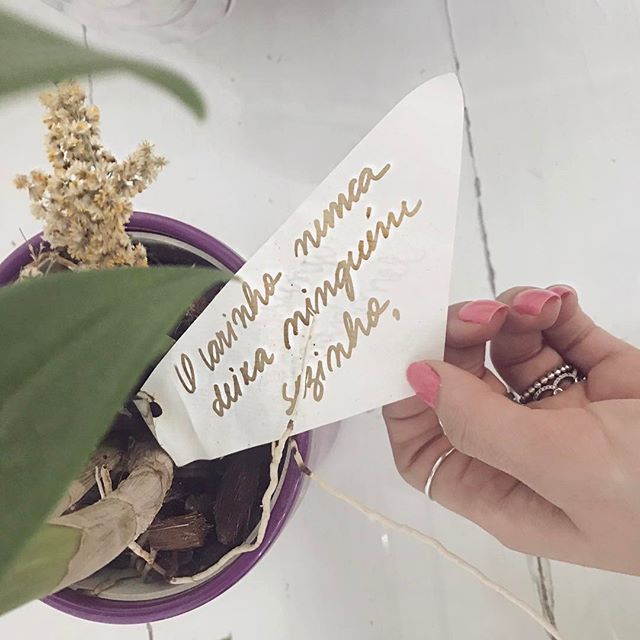 O carinho nunca
deixa ninguém
sozinho.